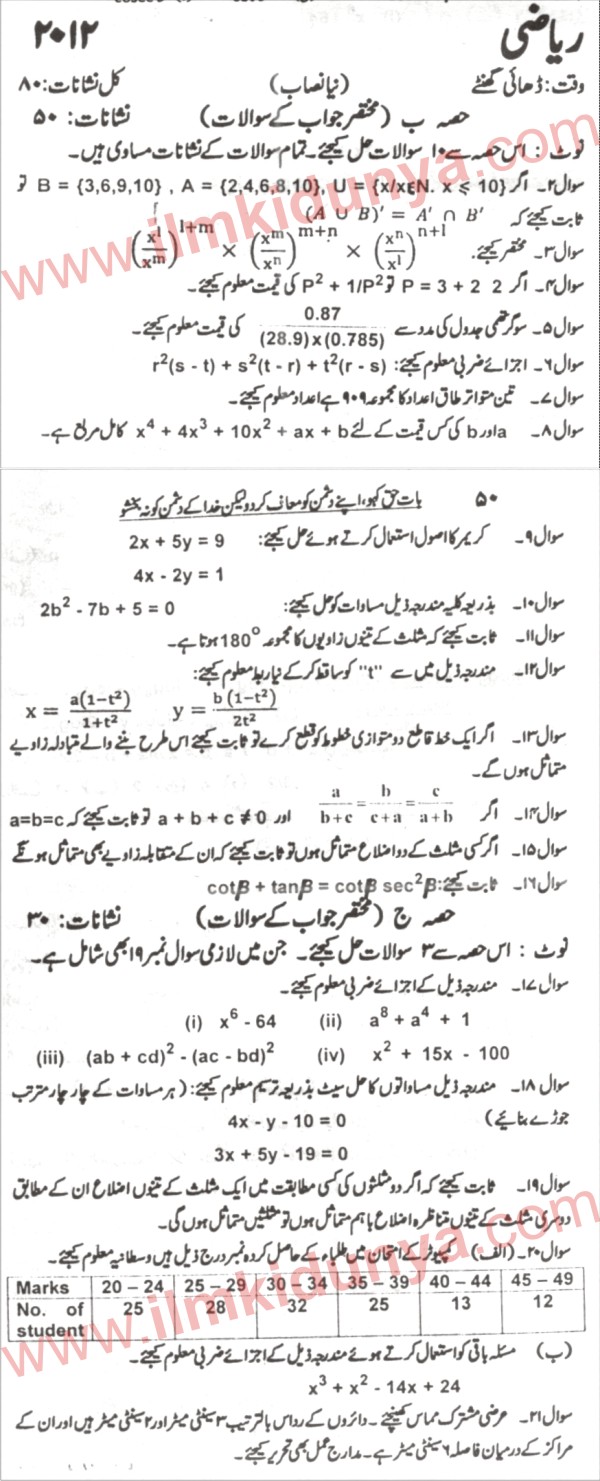 ریاضی ۲۰۱۲
وقت: ڈھائی گھنٹے (نیا نصاب) کل نشانات: ۸۰
حصہ ب (مختصر جواب کے سوالات) نشانات: ۵۰
نوٹ : اس حصہ سے ۱۰ سوالات حل کیجئے۔ تمام سوالات کے نشانات مساوی ہیں۔
سوال ۲۔ اگر B = {3,6,9,10} , A = {2,4,6,8,10}, U = {x/x∈N. x ⩽ 10} تو
ثابت کیجئے کہ (A ∪ B)′ = A′ ∩ B′
سوال ۳۔ مختصر کیجئے۔ (x^l/x^m)^(l+m) × (x^m/x^n)^(m+n) × (x^n/x^l)^(n+l)
سوال ۴۔ اگر P = 3 + 2 2 تو P² + 1/P² کی قیمت معلوم کیجئے۔
سوال ۵۔ لوگرتھمی جدول کی مدد سے 0.87 / (28.9)x(0.785) کی قیمت معلوم کیجئے۔
سوال ۶۔ اجزائے ضربی معلوم کیجئے: r²(s - t) + s²(t - r) + t²(r - s)
سوال ۷۔ تین متواتر طاق اعداد کا مجموعہ ۹۰۹ ہے اعداد معلوم کیجئے۔
سوال ۸۔ a اور b کی کس قیمت کے لئے x⁴ + 4x³ + 10x² + ax + b کامل مربع ہے۔
۵۰ بات حق کہو، اپنے دشمن کو معاف کر دو لیکن خدا کے دشمن کو نہ بخشو
سوال ۹۔ کریمر کا اصول استعمال کرتے ہوئے حل کیجئے: 2x + 5y = 9
4x - 2y = 1
سوال ۱۰۔ بذریعہ کلیہ مندرجہ ذیل مساوات کو حل کیجئے: 2b² - 7b + 5 = 0
سوال ۱۱۔ ثابت کیجئے کہ مثلث کے تینوں زاویوں کا مجموعہ 180° ہوتا ہے۔
سوال ۱۲۔ مندرجہ ذیل میں سے "t" کو ساقط کر کے نیا ربط معلوم کیجئے:
x = a(1−t²)/1+t² y = b(1−t²)/2t²
سوال ۱۳۔ اگر ایک خط قاطع دو متوازی خطوط کو قطع کرے تو ثابت کیجئے اس طرح بننے والے متبادلہ زاویے
متماثل ہوں گے۔
سوال ۱۴۔ اگر a/b+c = b/c+a = c/a+b اور a + b + c ≠ 0 تو ثابت کیجئے کہ a=b=c
سوال ۱۵۔ اگر کسی مثلث کے دو اضلاع متماثل ہوں تو ثابت کیجئے کہ ان کے متقابلہ زاویے بھی متماثل ہونگے
سوال ۱۶۔ ثابت کیجئے: cotβ + tanβ = cotβ sec²β
حصہ ج (مختصر جواب کے سوالات) نشانات: ۳۰
نوٹ : اس حصہ سے ۳ سوالات حل کیجئے۔ جن میں لازمی سوال نمبر ۱۹ بھی شامل ہے۔
سوال ۱۷۔ مندرجہ ذیل کے اجزائے ضربی معلوم کیجئے۔
(i) x⁶ - 64 (ii) a⁸ + a⁴ + 1
(iii) (ab + cd)² - (ac - bd)² (iv) x² + 15x - 100
سوال ۱۸۔ مندرجہ ذیل مساواتوں کا حل سیٹ بذریعہ ترسیم معلوم کیجئے: (ہر مساوات کے چار چار مترتب
جوڑے بنائیے) 4x - y - 10 = 0
3x + 5y - 19 = 0
سوال ۱۹۔ ثابت کیجئے کہ اگر دو مثلثوں کی کسی مطابقت میں ایک مثلث کے تینوں اضلاع ان کے مطابق
دوسری مثلث کے تینوں متناظرہ اضلاع باہم متماثل ہوں تو مثلثیں متماثل ہوں گی۔
سوال ۲۰۔ (الف) کمپیوٹر کے امتحان میں طلباء کے حاصل کردہ نمبر درج ذیل ہیں وسطانیہ معلوم کیجئے۔
Marks 20 – 24 25 – 29 30 – 34 35 – 39 40 – 44 45 – 49
No. of student 25 28 32 25 13 12
(ب) مسئلہ باقی کو استعمال کرتے ہوئے مندرجہ ذیل کے اجزائے ضربی معلوم کیجئے۔
x³ + x² - 14x + 24
سوال ۲۱۔ عرضی مشترک مماس کھینچئے۔ دائروں کے رداس بالترتیب ۳ سینٹی میٹر اور ۲ سینٹی میٹر ہیں اور ان کے
مراکز کے درمیان فاصلہ ۶ سینٹی میٹر ہے۔ مدارج عمل بھی تحریر کیجئے۔
www.ilmkidunya.com
www.ilmkidunya.com